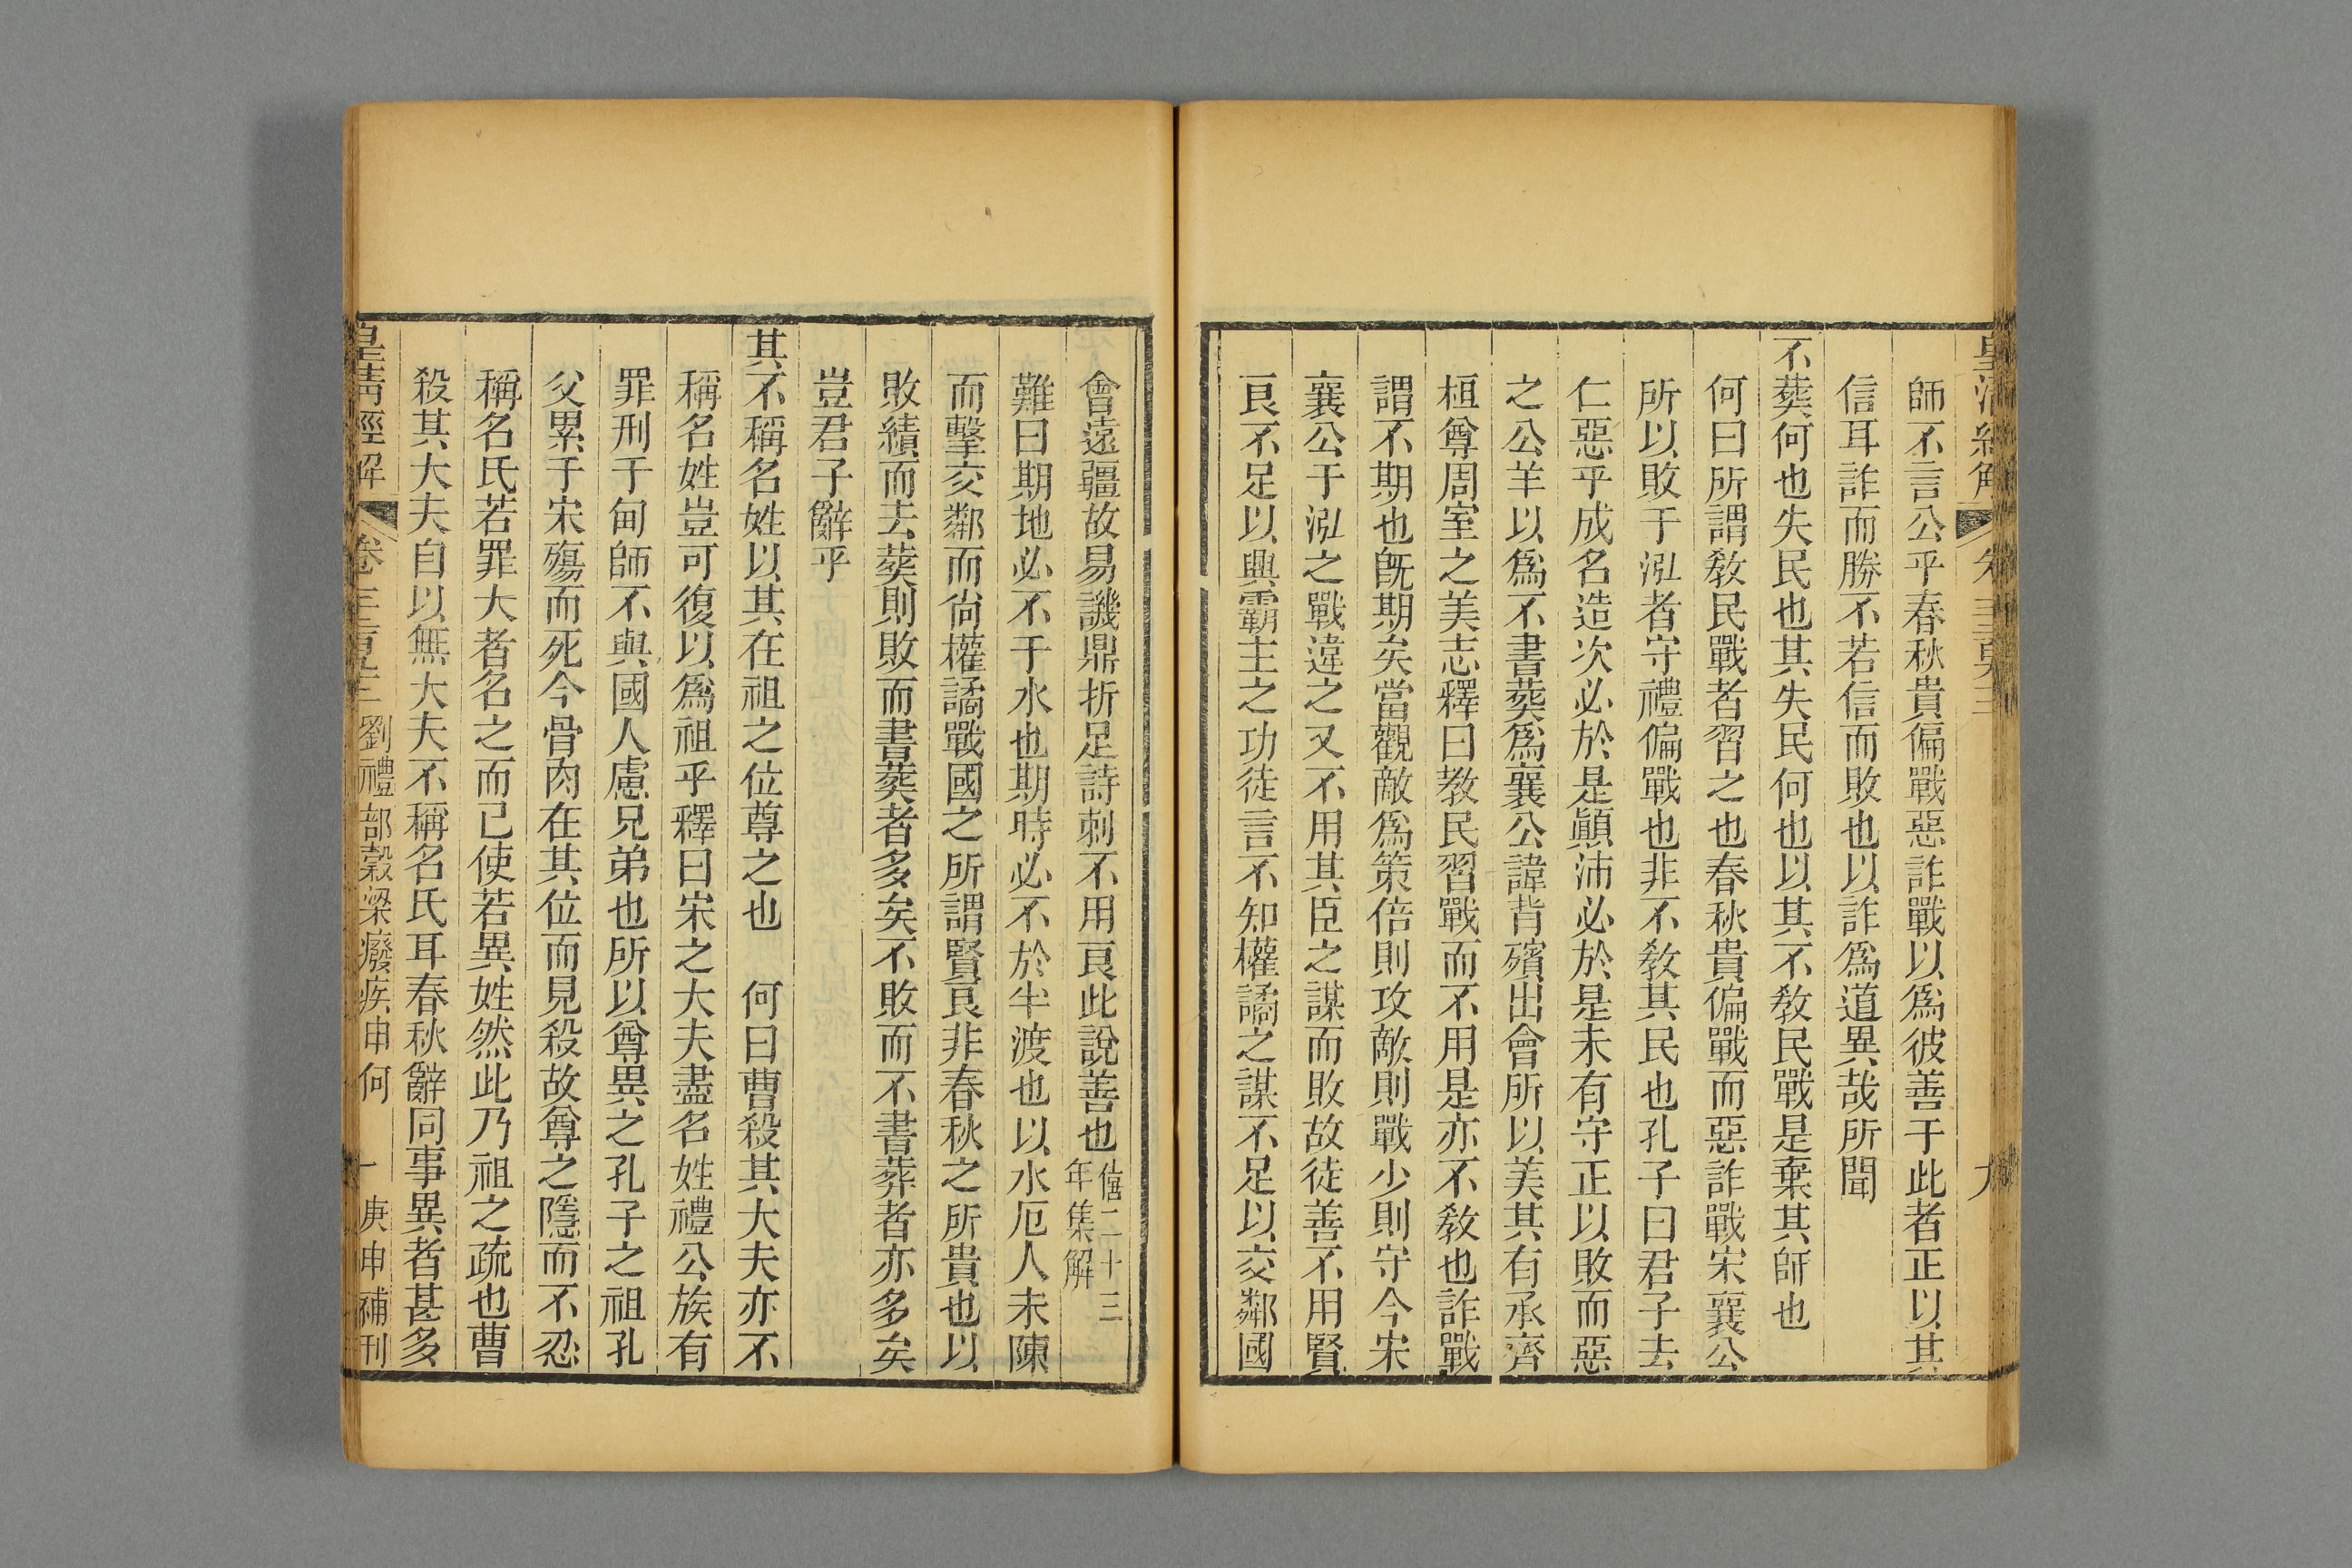 師不言公乎春秋貴偏戰惡詐戰以爲彼善于此者正以其
信耳詐而勝不若信而敗也以詐爲道異哉所聞
不葬何也失民也其失民何也以其不敎民戰是棄其師也
何曰所謂敎民戰者習之也春秋貴偏戰而惡詐戰宋襄公
所以敗于泓者守禮偏戰也非不敎其民也孔子曰君子去
仁惡乎成名造次必於是顚沛必於是未有守正以敗而惡
之公羊以爲不書葬爲襄公諱背殯出會所以美其有承齊
桓尊周室之美志釋曰教民習戰而不用是亦不敎也詐戰
謂不期也旣期矣當觀敵爲策倍則攻敵則戰少則守今宋
襄公于泓之戰違之又不用其臣之謀而敗故徒善不用賢
良不足以興霸主之功徒言不知權譎之謀不足以交鄰國
會遠疆故易譏鼎折足詩刺不用良此說善也僖二十三
年集解
難曰期地必不于水也期時必不於半渡也以水厄人未陳
而擊交鄰而尙權譎戰國之所謂賢良非春秋之所貴也以
敗績而去葬則敗而書葬者多矣不敗而不書葬者亦多矣
豈君子辭乎
其不稱名姓以其在祖之位尊之也　何曰曹殺其大夫亦不
稱名姓豈可復以爲祖乎釋曰宋之大夫盡名姓禮公族有
罪刑于甸師不與國人慮兄弟也所以尊異之孔子之祖孔
父累于宋殤而死今骨肉在其位而見殺故尊之隱而不忍
稱名氏若罪大者名之而已使若異姓然此乃祖之疏也曹
殺其大夫自以無大夫不稱名氏耳春秋辭同事異者甚多
皇淸經解　卷　劉禮部穀梁癈疾申何　一　庚申補刊